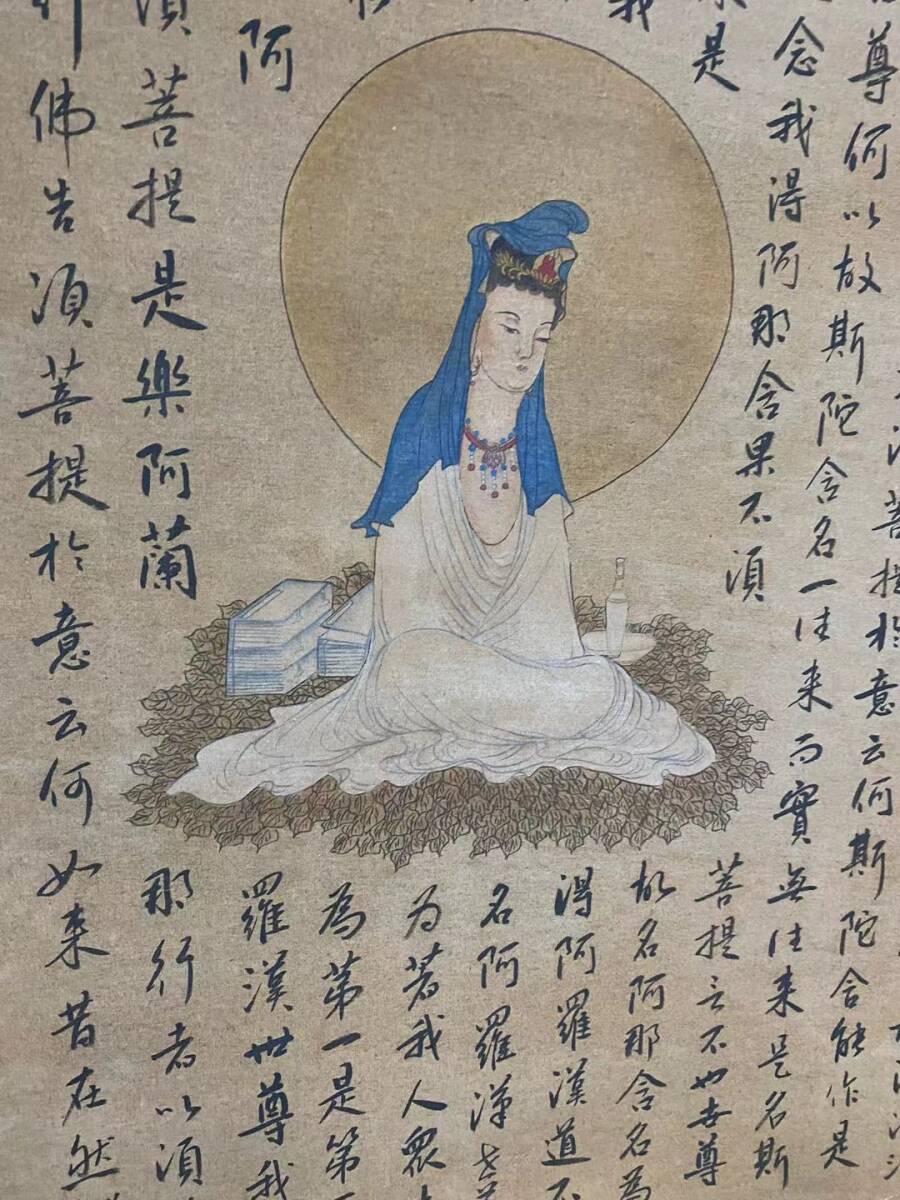 菩提於意云何斯陀含能作是
尊何以故斯陀含名一往来而實無往来是名斯
念我得阿那含果不須
菩提言不也世尊
是
故名阿那含名為
我
得阿羅漢道不
名阿羅漢世
为著我人眾
為第一是第
阿
羅漢世尊我
須菩提是樂阿蘭
那行者以須
行佛告須菩提於意云何如来昔在然